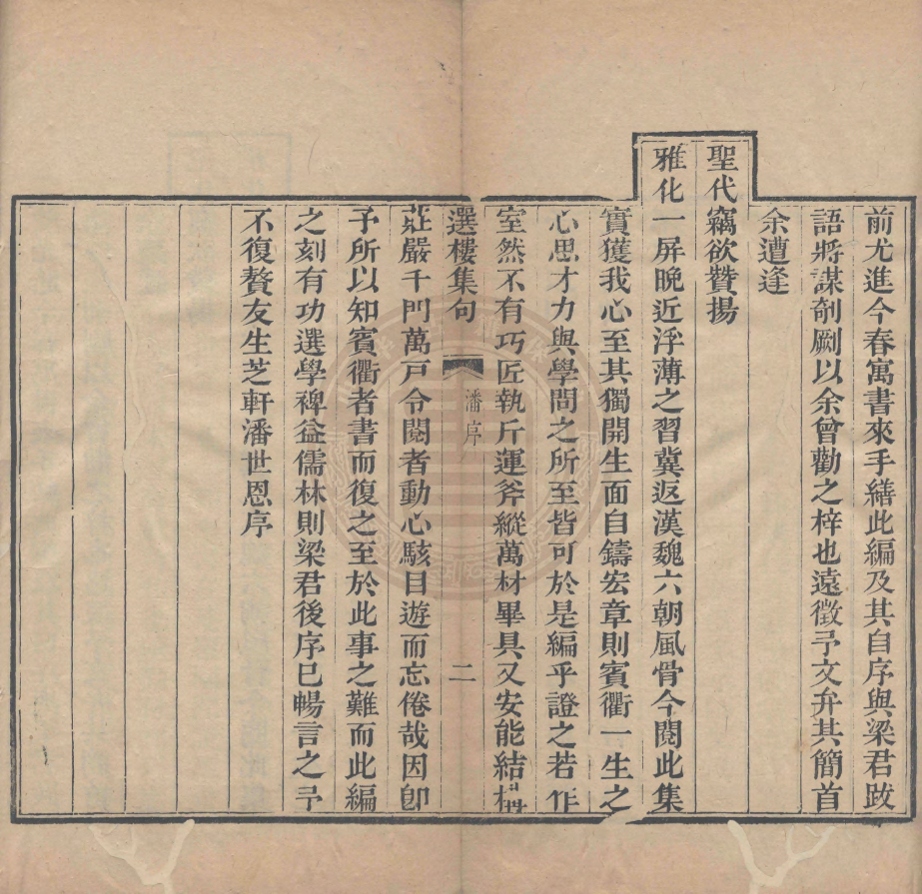 前尤進今春寓書來手繕此編及其自序與梁君跋
語將謀剞劂以余曾勸之梓也遠徵予文弁其簡首
余遭逢
聖代竊欲贊揚
雅化一屏晚近浮薄之習冀返漢魏六朝風骨今閱此集
實獲我心至其獨開生面自鑄宏章則賓衢一生之
心思才力與學問之所至皆可於是編乎證之若作
室然不有巧匠執斤運斧縱萬材畢具又安能結構
選樓集句 潘序 二
莊嚴千門萬戸令閱者動心駭目遊而忘倦哉因卽
予所以知賓衢者書而復之至於此事之難而此編
之刻有功選學裨益儒林則梁君後序已暢言之予
不復贅友生芝軒潘世恩序